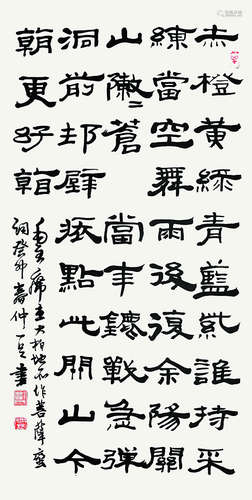 赤橙黃綠青藍紫誰持采
練當空舞雨後復斜陽關
山陣〻蒼當年鏖戰急彈
洞前邨壁裝點此關山今
朝更好看
毛主席在大柏地所作菩薩蠻
詞癸卯春仲書